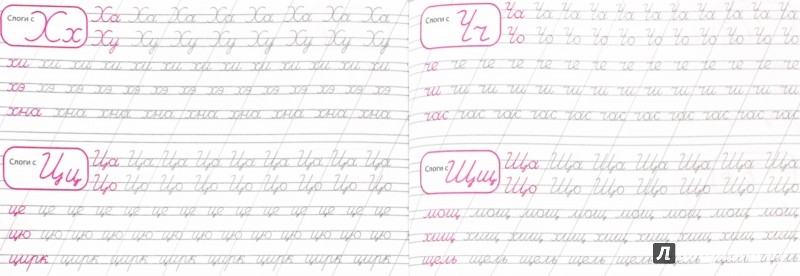 Слоги с Хх
Ха Ха Ха Ха Ха Ха Ха Ха
Ху Ху Ху Ху Ху Ху Ху Ху
хи хи хи хи хи хи хи хи хи хи хи хи
хэ хэ хэ хэ хэ хэ хэ хэ хэ хэ хэ хэ хэ хэ
хна хна хна хна хна хна хна хна хна
Слоги с Цц
Ца Ца Ца Ца Ца Ца Ца Ца Ца
Цо Цо Цо Цо Цо Цо Цо Цо Цо
це це це це це це це це це це це це це
цю цю цю цю цю цю цю цю цю цю цю
цирк цирк цирк цирк цирк цирк цирк цирк
Слоги с Чч
Ча Ча Ча Ча Ча Ча Ча Ча Ча Ча Ча
Чо Чо Чо Чо Чо Чо Чо Чо Чо Чо Чо
че че че че че че че че че че че че че че
чи чи чи чи чи чи чи чи чи чи чи чи чи чи
час час час час час час час час час час час
Слоги с Щщ
Ща Ща Ща Ща Ща Ща Ща
Що Що Що Що Що Що Що
мощ мощ мощ мощ мощ мощ мощ мощ
хищ хищ хищ хищ хищ хищ хищ хищ
щель щель щель щель щель щель щель щель
Л